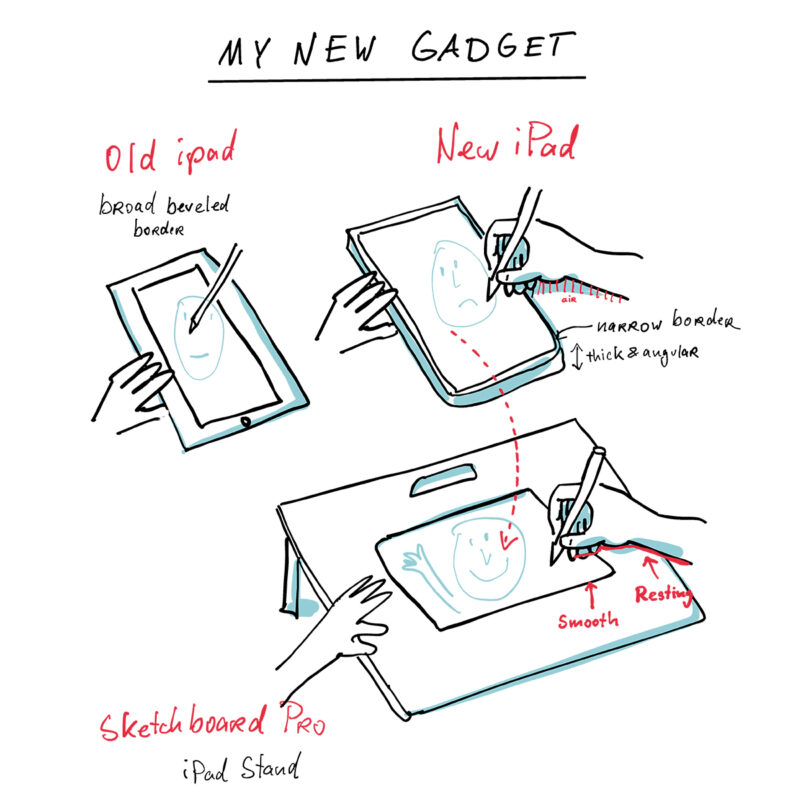 MY NEW GADGET
Old ipad
broad beveled
border
New iPad
air
narrow border
thick & angular
Smooth
Resting
Sketchboard Pro
iPad Stand